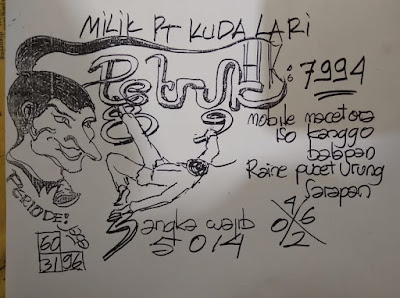 MILIK PT KUDA LARI
Petruk HK: 7994
mobile macet ora
iso kanggo
balapan
Raine pucet urung
sarapan
PERIODE:
60
31 96
angka wajib
5 0 1 4
4
0 6
2